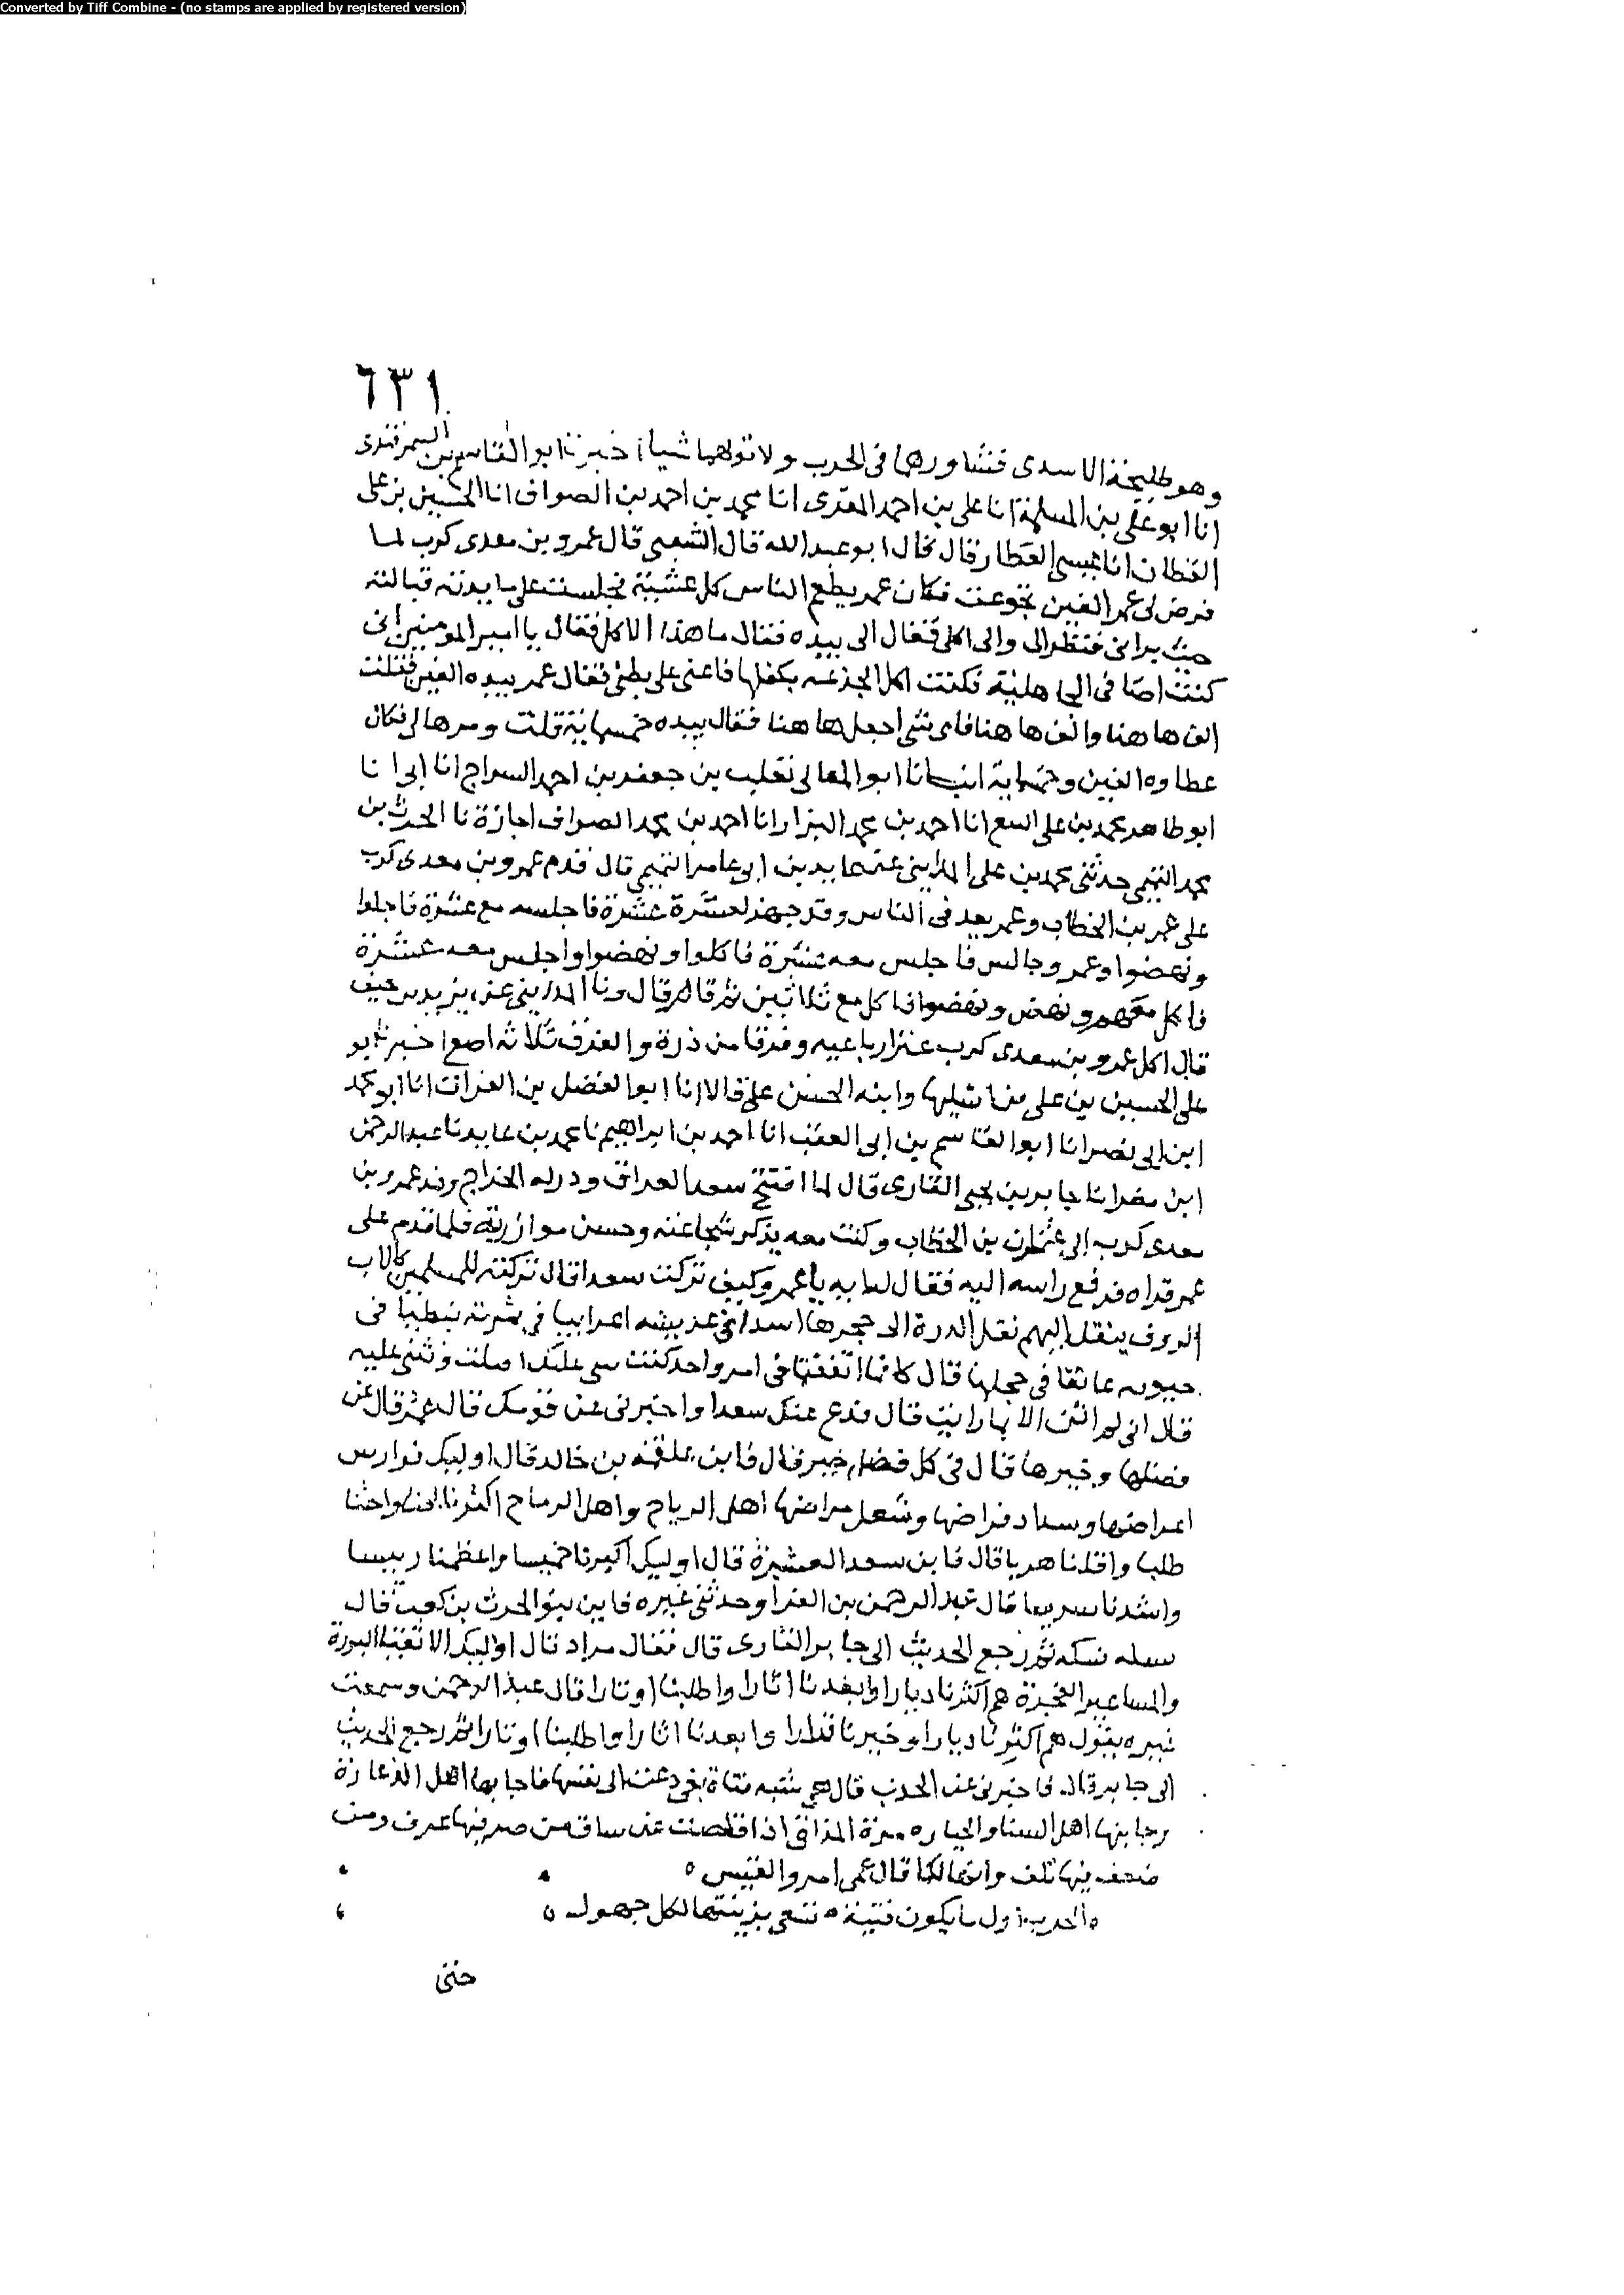 Converted by Tiff Combine - (no stamps are applied by registered version)
٦٣١
وهو طليحة الاسدى فشاورهما فى الحرب ولا تولهما شيا اخبرنا ابو القاسم بن السمرقندى
انا ابو على بن المسلمة انا على بن احمد المقرى انا محمد بن احمد بن الصواف انا الحسين بن على
القطان انا عيسى العطار قال قال ابو عبد الله قال الشعبى قال عمرو بن معدى كرب لما
فرض لى عمر الفين تجوعت فكان عمر يطعم الناس كل عشية فجلست على مايدته قبالته
حيث يرانى فنظر الى والى اكلى فقال الى بيده فقال ما هذا الاكل فقال يا امير المومنين انى
كنت فى الجاهلية فكنت اكل الجذعه بكفلها فاعنى على بطنى فقال عمر بيده الفين فقلت
الف ها هنا والف ها هنا فاى شى اجعل ها هنا فقال بيده خمسماية قلت ومر هالى فكان
عطاوه الفين وخمسماية انبانا ابو المعالى ثعلب بن جعفر بن احمد السراج انا ابى انا
ابو طاهر محمد بن على انا احمد بن محمد البزار انا احمد بن محمد الصواف اجازة نا الحرث بن
محمد التميمى حدثنى محمد بن على المداينى عن عابد بن ابى عامر التميمى قال قدم عمرو بن معدى كرب
على عمر بن الخطاب وعمر يعد فى الناس وقد جهز لعشرة عشرة فاجلسه مع عشرة فاكلوا
ونهضوا وعمرو جالس فاجلس معه عشرة فاكلوا ونهضوا واجلس معه عشرة
فاكل معهم ونهض ونهضوا فاكل مع ثلاثين ثم قام قال ونا المداينى عن يزيد بن
قال اكل عمرو بن معدى كرب عنزا رباعيه وفرقا من ذرة والفرق ثلاثه اصع اخبرنا ابو
على الحسين بن على بن اشليها وابنه الحسن على قالا انا ابو الفضل بن الفرات انا ابو محمد
ابن ابى نصر انا ابو القاسم بن ابى العقب انا احمد بن ابراهيم نا محمد بن عايد نا عبد الرحمن
ابن مغرا نا جابر بن يحيى القارى قال لما افتتح سعد العراق ودر له الخراج وفد عمرو بن
معدى كرب الى بن الخطاب وكنت معه يذكر شجاعته وحسن موازرته فلما قدم على
عمر قراه فرفع راسه اليه فقال له ايه يا عمرو كيف تركت سعدا قال تركته للمسلمين كالاب
الروف ينقل اليهم نقل الذرة الى جحرها اسدا فى عريشه اعرابيا فى نمرته نبطيا فى
عاتقا فى حجلها قال كانما اتفقتما فى امر واحد كنت
قال انى لم اثن الا بما رايت قال فدع عنك سعدا واخبرنى عن قومك قال
فضلها وخيرها قال فى كل فضل خير قال فاين علقمه بن خالد قال اوليك فوارس
اعراضها وسداد فراضها وشعل اهل الرياح واهل الرماح اكثرنا
طلبا واقلنا هربا قال فاين سعد العشيرة قال اوليك اكبرنا خميسا واعظمنا رييسا
واشدنا سريسا قال عبد الرحمن بن المغرا وحدثنى غيره فاين بنو الحرث بن كعب قال
ثم رجع الحديث الى جابر القارى قال فقال مراد قال اوليك الاتقيا البررة
والمساعير الفخرة هم اكثرنا ديارا وابعدنا اثارا واطلبنا اوتارا قال عبد الرحمن وسمعت
غيره يقول هم اكثرنا ديارا وخيرنا وابعدنا اثارا واطلبنا اوتارا ثم رجع الحديث
الى جابر قال فاخبرنى عن الحرب قال هى شبه فتاة دعت الى نفسها فاجابها اهل الذعارة
وجانبها اهل السنا والحيا مرة المذاق اذا قلصت عن ساق من صبر فيها عرف ومن
ضعف فيها تلف وانها لكما قال عمى امرو القيس
الحرب اول ما يكون فتية تسعى بزينتها لكل جهول
حتى